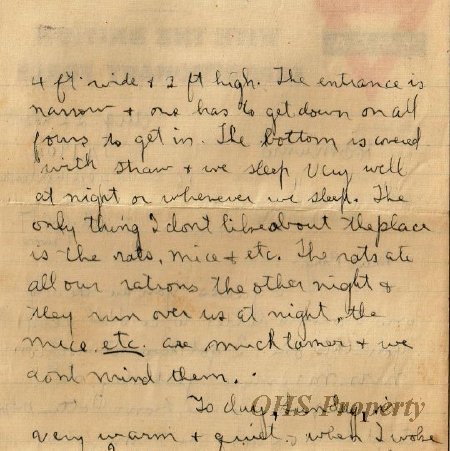 4 ft. wide & 2 ft high. The entrance is
narrow & one has to get down on all
fours to get in. The bottom is covered
with straw & we sleep very well
at night or whenever we sleep. The
only thing I dont like about the place
is the rats, mice & etc. The rats ate
all our rations the other night &
they run over us at night, the
mice etc. are much tamer & we
dont mind them.
To day, is
OHS Property
very warm & quiet, when I woke